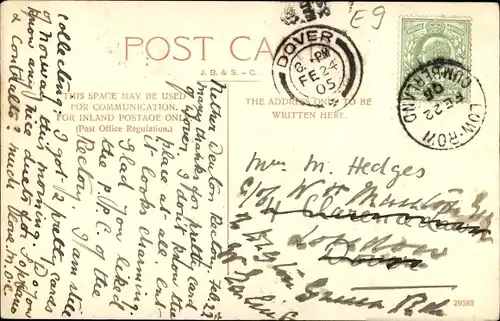 E9
POST CA
J. B. & S. – C.
THIS SPACE MAY BE USED
FOR COMMUNICATION.
FOR INLAND POSTAGE ONLY
(Post Office Regulation.)
THE ADDRESS ONLY TO BE
WRITTEN HERE.
DOVER
PM
FE 24
05
LOW-ROW
CUMBERLAND
FE 22
05
Nether Denton Rectory, Feb. 22nd
Many thanks for pretty card
of Dover. I don't know the
place at all, but
it looks charming.
Glad you liked
the P.P.C. of the
Rectory. I am still
collecting. I got 12 pretty cards
of Norway this morning. Do you
know any nice duets for Soprano
& Contralto? Much love
Mrs. M. Hedges
c/o
4 Clarence Lawn
London
Dover
29588